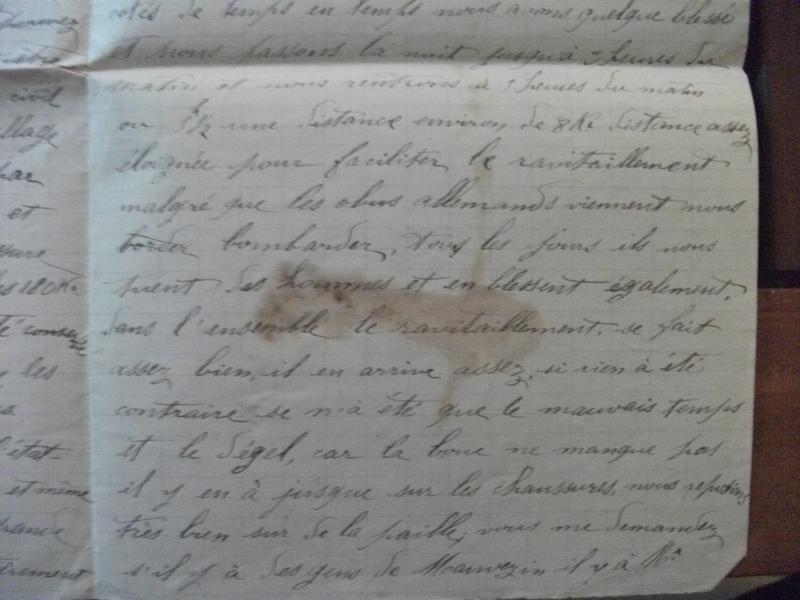 cotés de temps en temps nous avons quelque blessé
et nous passons la nuit jusqu'à heures du
matin et nous rentrons à 5 heures du matin
ou 5h½ une distance environ de 8 K distance assez
éloignée pour faciliter le ravitaillement
malgré que les obus allemands viennent nous
border bombarder, tous les jours ils nous
tuent des hommes et en blessent également,
dans l'ensemble le ravitaillement se fait
assez bien, il en arrive assez, si rien à été
contraire se n'à été que le mauvais temps
et le dégel, car la boue ne manque pas
il y en à jusque sur les chaussures, nous reposons
très bien sur de la paille, vous me demandez
s'il y à des gens de il y à Mr
être
civil
llage
par
et
les 180K
té conseille
les
l'état-
et même